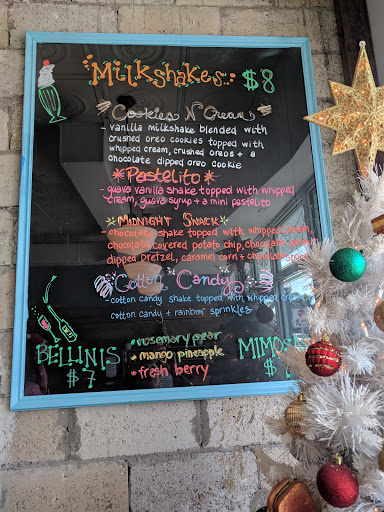 Milkshakes: $8
Cookies N' Cream
- vanilla milkshake blended with
crushed oreo cookies topped with
whipped cream, crushed oreos + a
chocolate dipped oreo cookie
Pastelito
- guava vanilla shake topped with whipped
cream, guava syrup + a mini pastelito
Midnight Snack
- chocolate shake topped with whipped cream,
chocolate covered potato chip, chocolate
dipped pretzel, caramel corn +
Cotton Candy
- cotton candy shake topped with whipped cream
cotton candy + rainbow sprinkles
Bellinis
$7
• rosemary pear
• mango pineapple
• fresh berry
Mimos
$